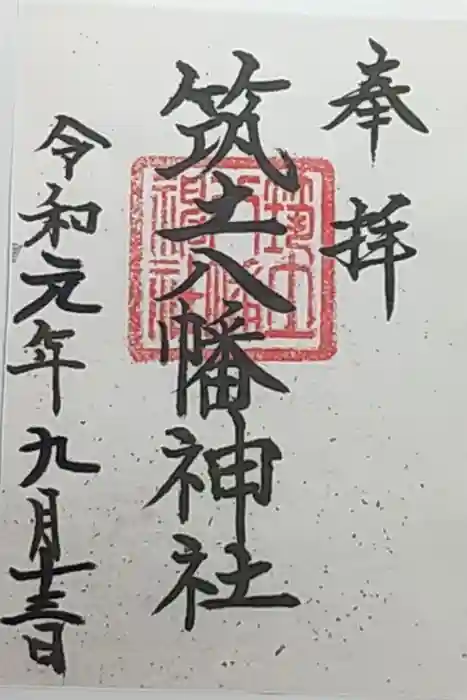 奉拝
筑土八幡神社
令和元年九月十三日